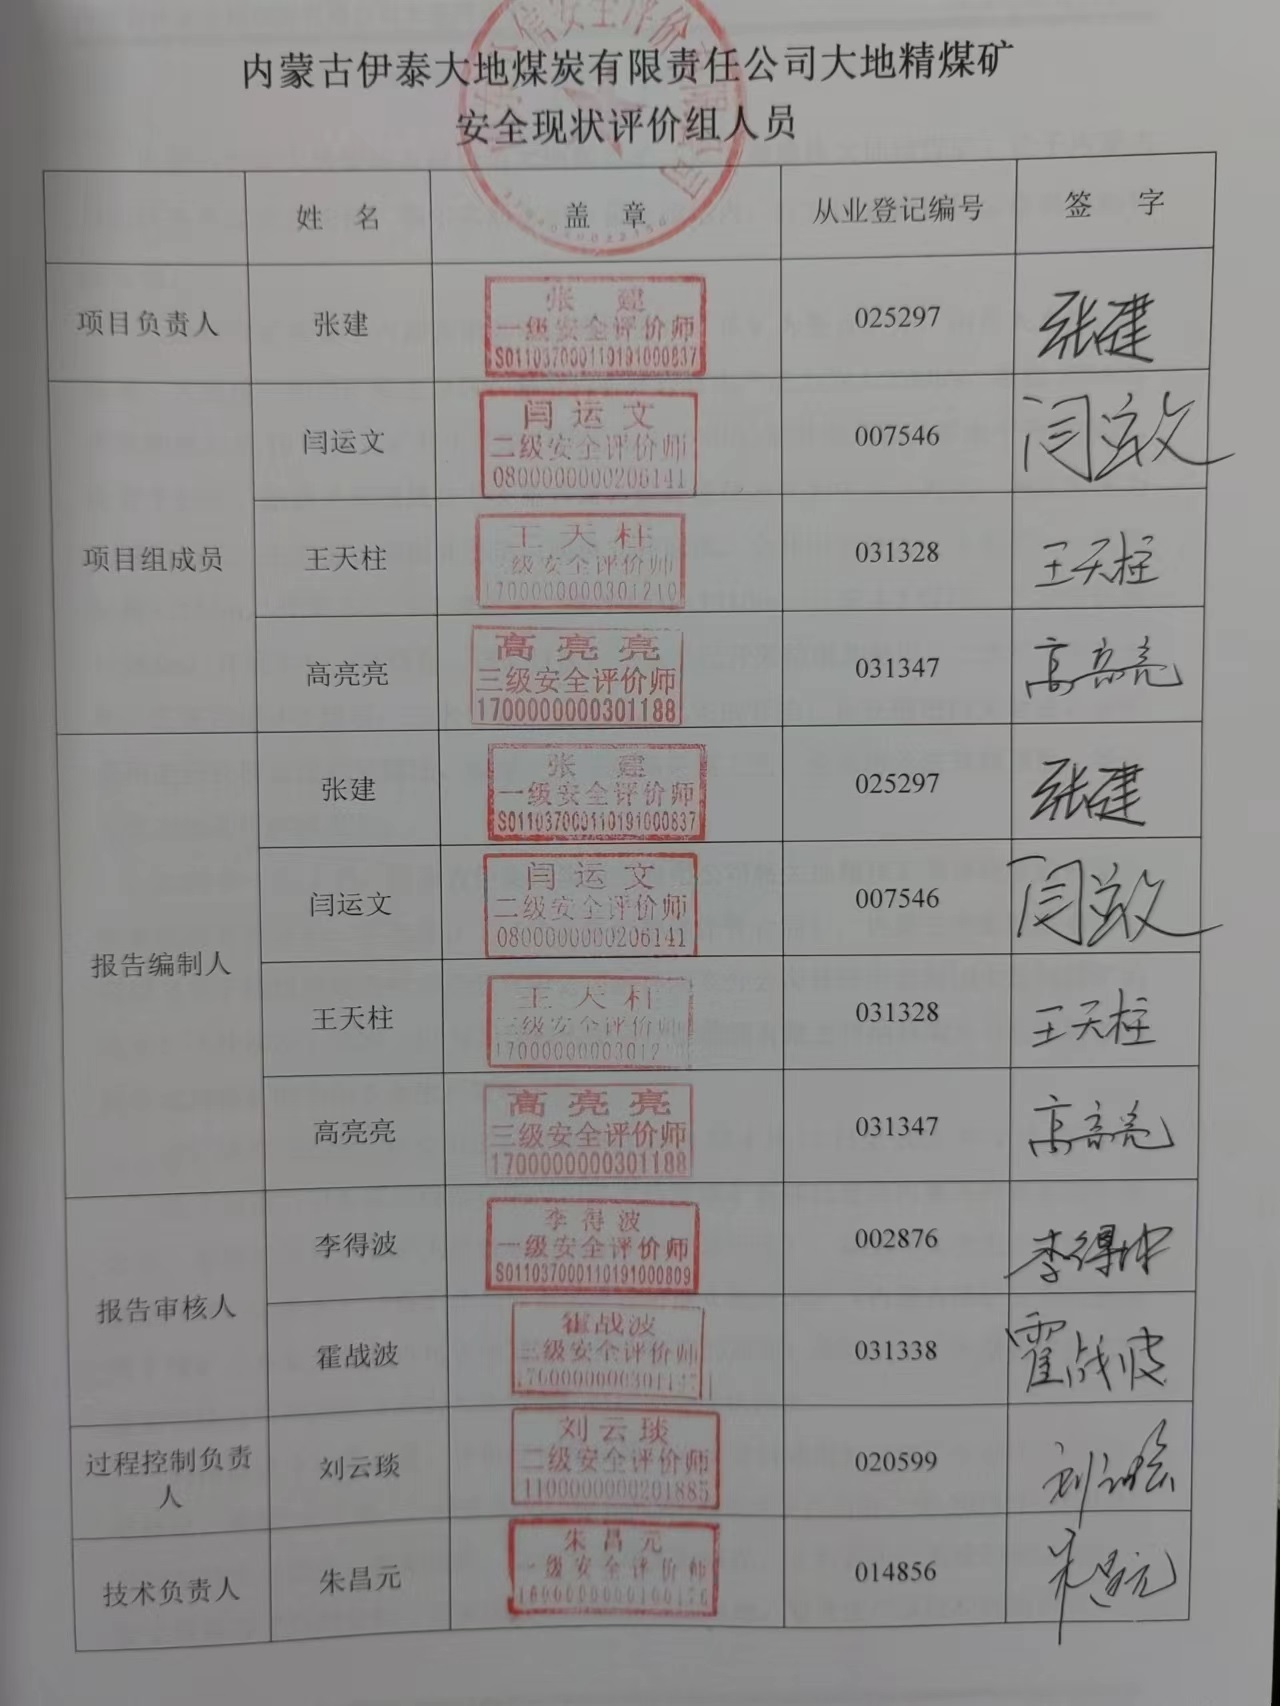 内蒙古伊泰大地煤炭有限责任公司大地精煤矿
安全现状评价组人员
姓 名 盖 章 从业登记编号 签 字
项目负责人 张建 025297 张建
张 建
一级安全评价师
S011037000110191000837
项目组成员
闫运文 007546 闫运文
闫运文
二级安全评价师
0800000000206141
王天柱 031328 王天柱
王天柱
三级安全评价师
1700000000301210
高亮亮 031347 高亮亮
高亮亮
三级安全评价师
1700000000301188
报告编制人
张建 025297 张建
张 建
一级安全评价师
S011037000110191000837
闫运文 007546 闫运文
闫运文
二级安全评价师
0800000000206141
王天柱 031328 王天柱
王天柱
三级安全评价师
高亮亮 031347 高亮亮
高亮亮
三级安全评价师
1700000000301188
报告审核人
李得波 002876 李得波
李得波
一级安全评价师
S011037000110191000809
霍战波 031338 霍战波
霍战波
三级安全评价师
过程控制负责人 刘云琰 020599 刘云琰
刘云琰
二级安全评价师
1100000000201885
技术负责人 朱昌元 014856 朱昌元
朱昌元
一级安全评价师